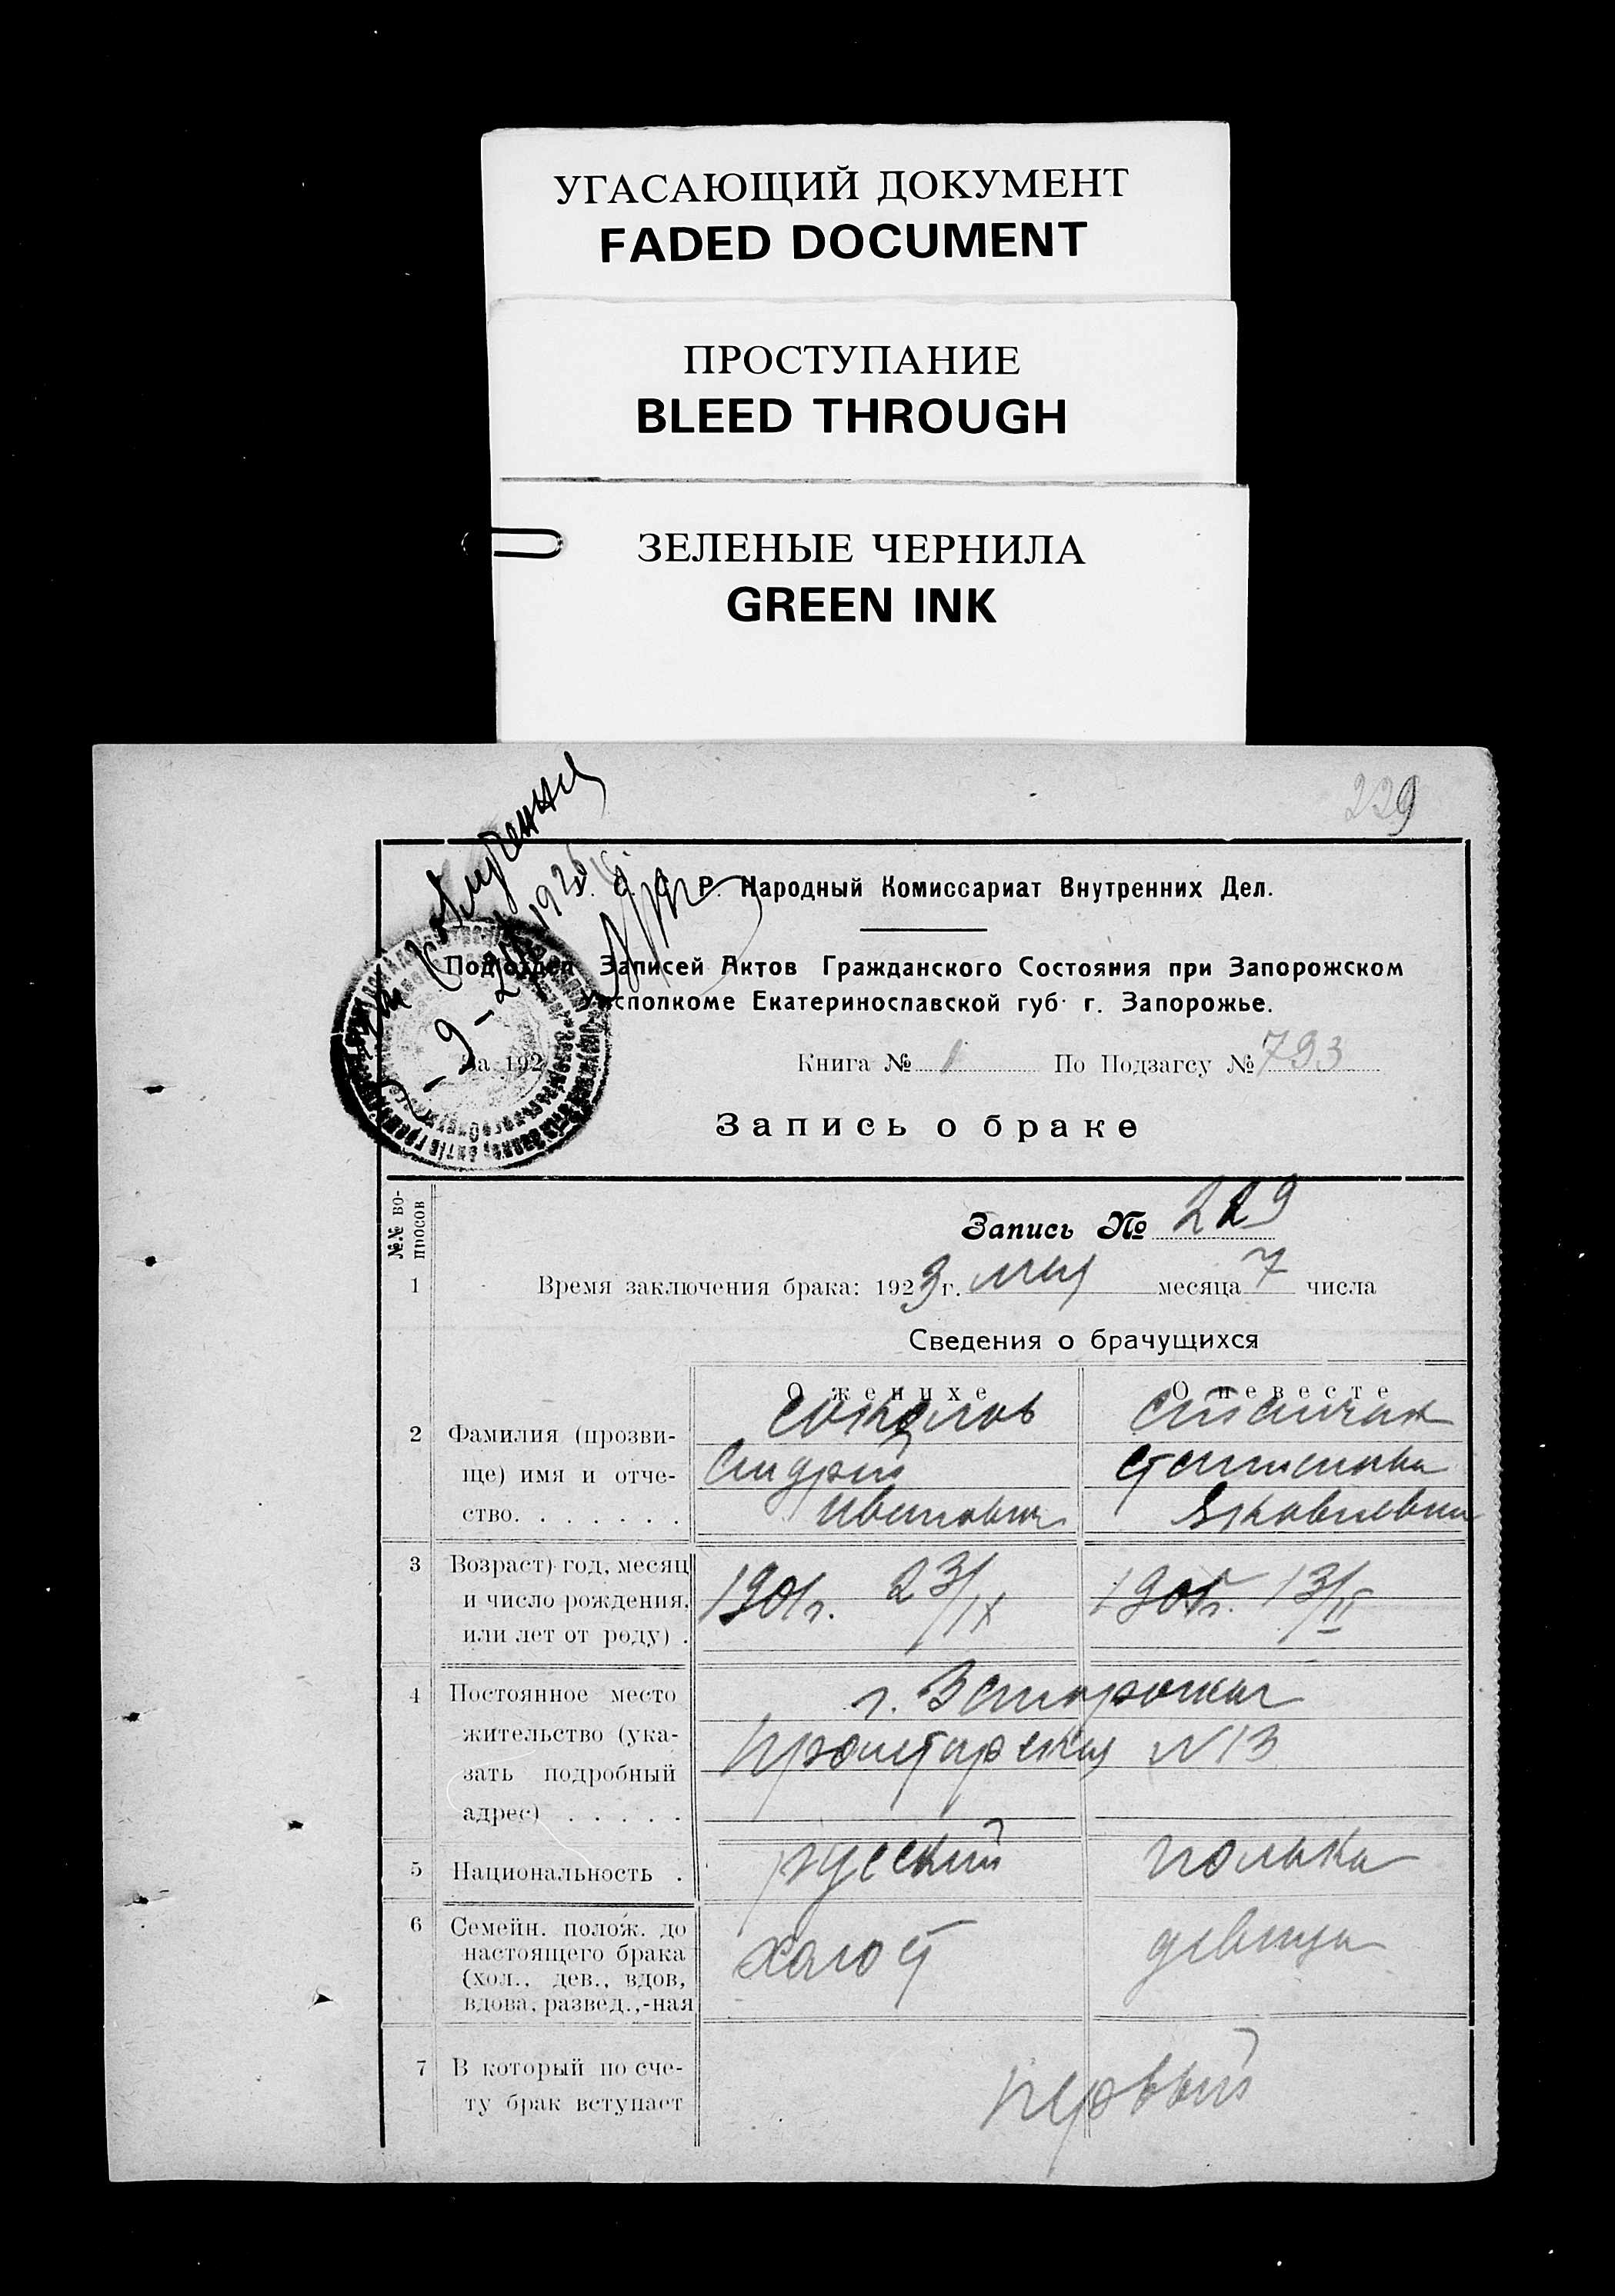 УГАСАЮЩИЙ ДОКУМЕНТ
FADED DOCUMENT
ПРОСТУПАНИЕ
BLEED THROUGH
ЗЕЛЕНЫЕ ЧЕРНИЛА
GREEN INK
229
С. Р. Народный Комиссариат Внутренних Дел.
Подотдел Записей Актов Гражданского Состояния при Запорожском
Исполкоме Екатеринославской губ. г. Запорожье.
За 192
Книга № 1 По Подзагсу № 793
Запись о браке
№№ во-
просов
Запись № 229
1 Время заключения брака: 1923 г. мая месяца 7 числа
Сведения о брачущихся
О женихе О невесте
2 Фамилия (прозви-
ще) имя и отче-
ство. . . . . . .
Соколов
Андрей
Иванович
Яковлевна
3 Возраст) год, месяц
и число рождения,
или лет от роду) .
1901г. 23/IX
13/II
4 Постоянное место
жительство (ука-
зать подробный
адрес) . . . . .
г. Запорожье
Пролетарская №13
5 Национальность .
русский полька
6 Семейн. полож. до
настоящего брака
(хол., дев., вдов,
вдова, развед.,-ная
холост девица
7 В который по сче-
ту брак вступает
первый